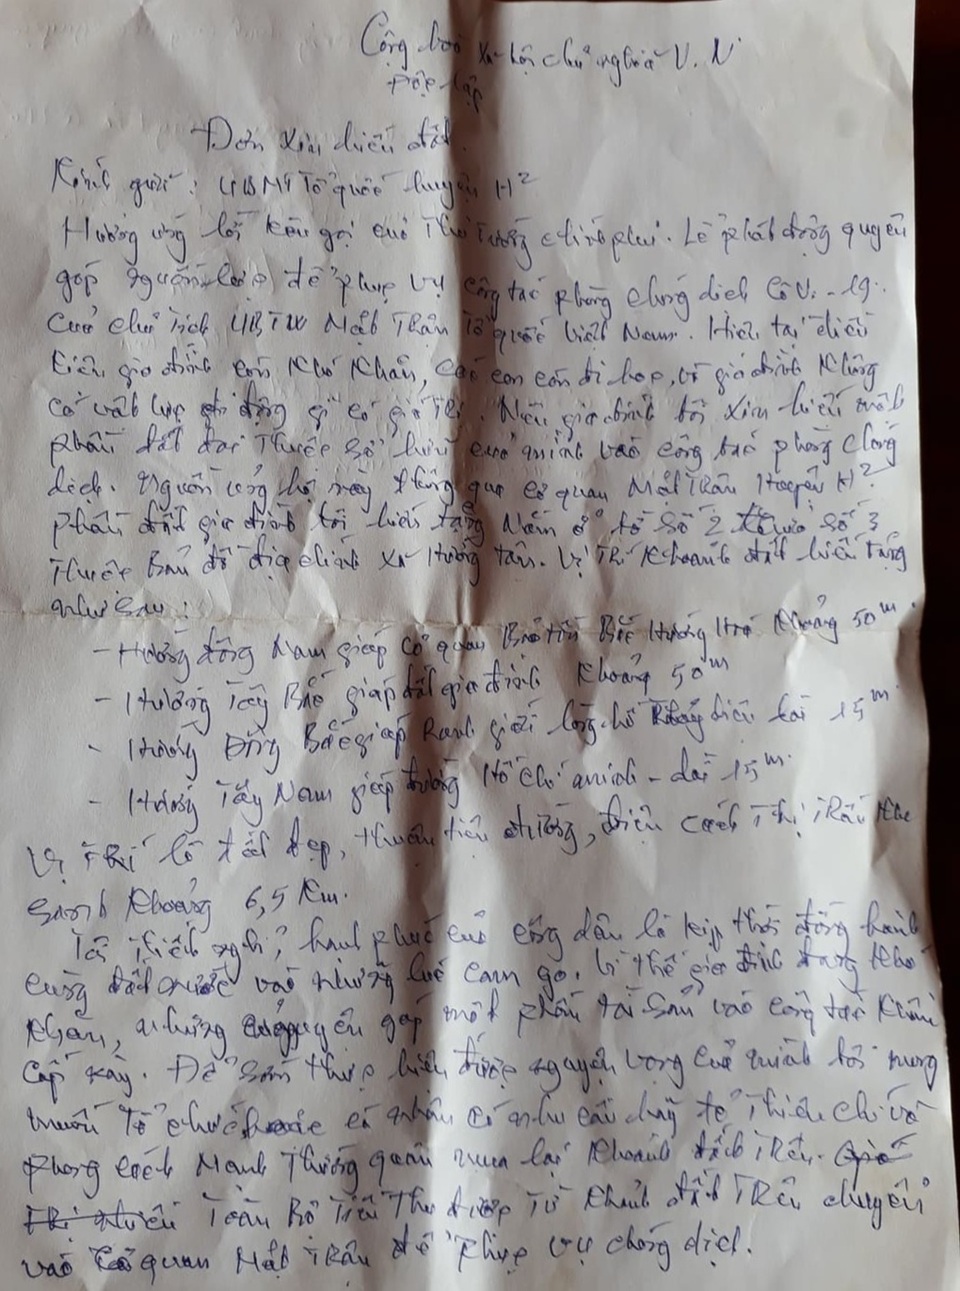 Cộng hoà xã hội chủ nghĩa V.N
Độc lập
Đơn xin hiến đất.
Kính gửi: UBMT Tổ quốc huyện H²
Hưởng ứng lời kêu gọi của Thủ Tướng chính phủ. Lễ phát động quyên
góp nguồn lực để phục vụ công tác phòng chống dịch Cô Vi-19.
Của chủ tịch UBTW Mặt Trận Tổ quốc Việt Nam. Hiện tại điều
kiện gia đình còn khó khăn, các con còn đi học, vì gia đình không
có vật lực gì có giá trị. Nên gia đình tôi xin hiến một
phần đất đai thuộc sở hữu của mình vào công tác phòng chống
dịch. Nguồn ủng hộ này thông qua cơ quan Mặt Trận Huyện H².
Phần đất gia đình tôi hiến tặng nằm ở tờ số 2 thửa số 3
Thuộc Bản đồ địa chính xã Hướng Tân. Vị trí khoảnh đất hiến tặng
như sau:
- Hướng đông Nam giáp cơ quan Bảo tồn Bắc Hướng Hoá khoảng 50m.
- Hướng Tây Bắc giáp đất gia đình khoảng 50m
- Hướng Đông Bắc giáp Ranh giới lòng hồ dài 15m.
- Hướng Tây Nam giáp đường Hồ Chí Minh - dài 15m.
Vị trí lô đất đẹp, thuận tiện đường, điện cách Thị Trấn Khe
Sanh khoảng 6,5 Km.
Tôi thiết nghĩ, hạnh phúc của công dân là kịp thời đồng hành
cùng đất nước vào những lúc cam go. Vì thế gia đình đang khó
khăn, nhưng quyên góp một phần tài sản vào công tác khẩn
cấp này. Để sớm thực hiện được nguyện vọng của mình tôi mong
muốn Tổ chức hoặc cá nhân có nhu cầu hãy Thiện chí và
phong cách Mạnh Thường quân mua lại khoảnh đất trên.
Toàn Bộ Tiền Thu được Từ khoảnh đất Trên chuyển
vào cơ quan Mặt Trận để phục vụ chống dịch.